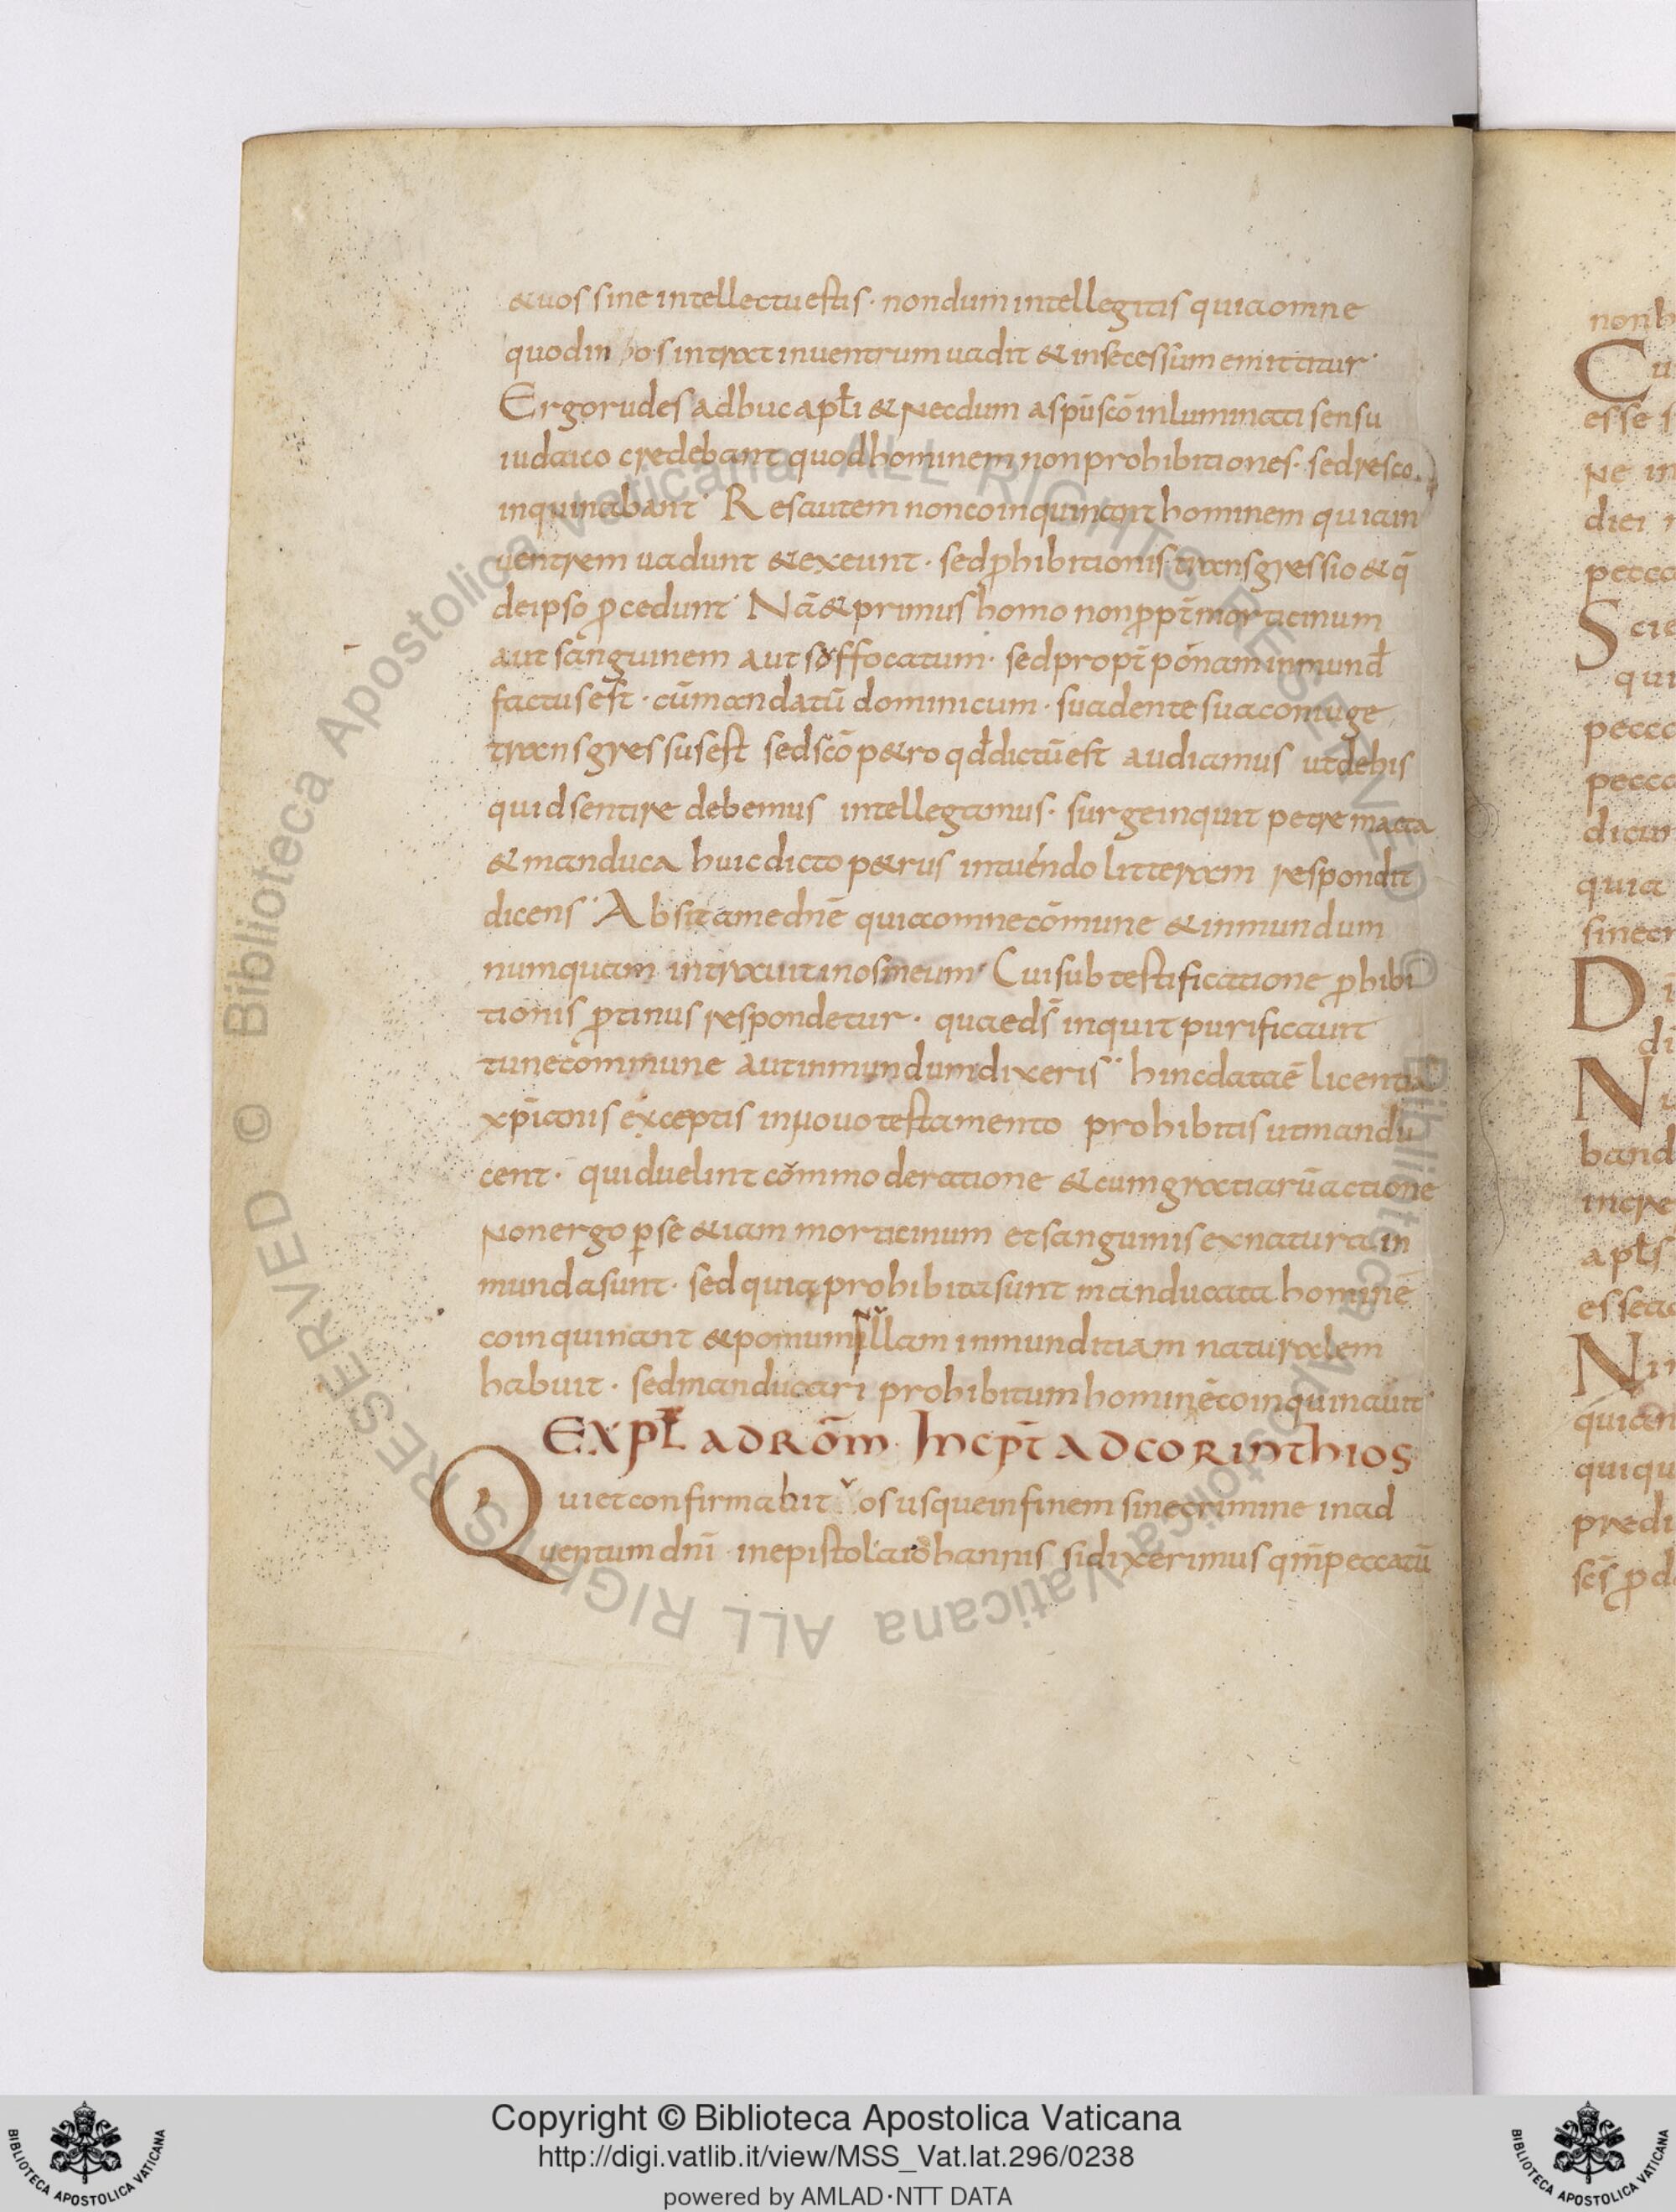 &uos sine intellectu estis · nondum intellegitis quia omne
quod in os intrat in uentrum uadit & in secessum emittitur·
Ergo rudes adhuc apłi & necdum a spū scō inluminati sensu
iudaico credebant quod hominem non prohibitiones · sed res co
inquinabant· Res autem non coinquinant hominem qui a in
uentrem uadunt & exeunt · sed ꝓhibitionis transgressio & q̄
de ipso ꝓcedunt· Nā & primus homo non ꝓpt̄ morticinum
aut sanguinem aut soffocatum · sed propt̄ pómam inmund̄
factus est · cū mandatū dominicum · suadente sua coniuge
transgressus est sed scō p&ro qd̄ dictū est audiamus ut de his
quid sentire debemus intellegamus · surge inquit petre macta
& manduca huic dicto p&rus intuendo litteram respondit
dicens· Absit a me dnē quia omne cōmune & inmundum
numquam intrauit in os meum· Cui sub testificatione ꝓhibi
tionis ꝓtinus respondetur · quae ds̄ inquit purificauit
tu ne commune aut inmundum dixeris· hinc data ē licentia
xp̄ianis exceptis in nouo testamento prohibitis ut mandu
cent · quid uelint com moderatione & cum gratiarū actione
Non ergo ꝑ se &iam morticinum et sanguinis ex natura in
munda sunt · sed quia prohibita sunt manducata hominē
coinquinant & pomum nullam inmunditiam naturalem
habuit · sed manducari prohibitum hominē coinquinauit
EXPŁ AD ROM̄ · INCPT̄ AD CORINTHIOS
Qui et confirmabit uos usque in finem sine crimine in ad
uentum dnī in epistola iohannis si dixerimus qm̄ peccatū
nonh
Cu
esse s
Ne in
diei
pecca
Scie
qui
pecca
pecca
dicun
quia
sinecr
D
di
N
band
incre
apłs
essea
Nii
quian
quiqu
predi
scs̄ ꝓd
© Biblioteca Apostolica Vaticana ALL RIGHTS RESERVED
© Biblioteca Apostolica Vaticana ALL RIGHTS RESERVED
Copyright © Biblioteca Apostolica Vaticana
http://digi.vatlib.it/view/MSS_Vat.lat.296/0238
powered by AMLAD·NTT DATA
BIBLIOTECA APOSTOLICA VATICANA
BIBLIOTECA APOSTOLICA VATICANA